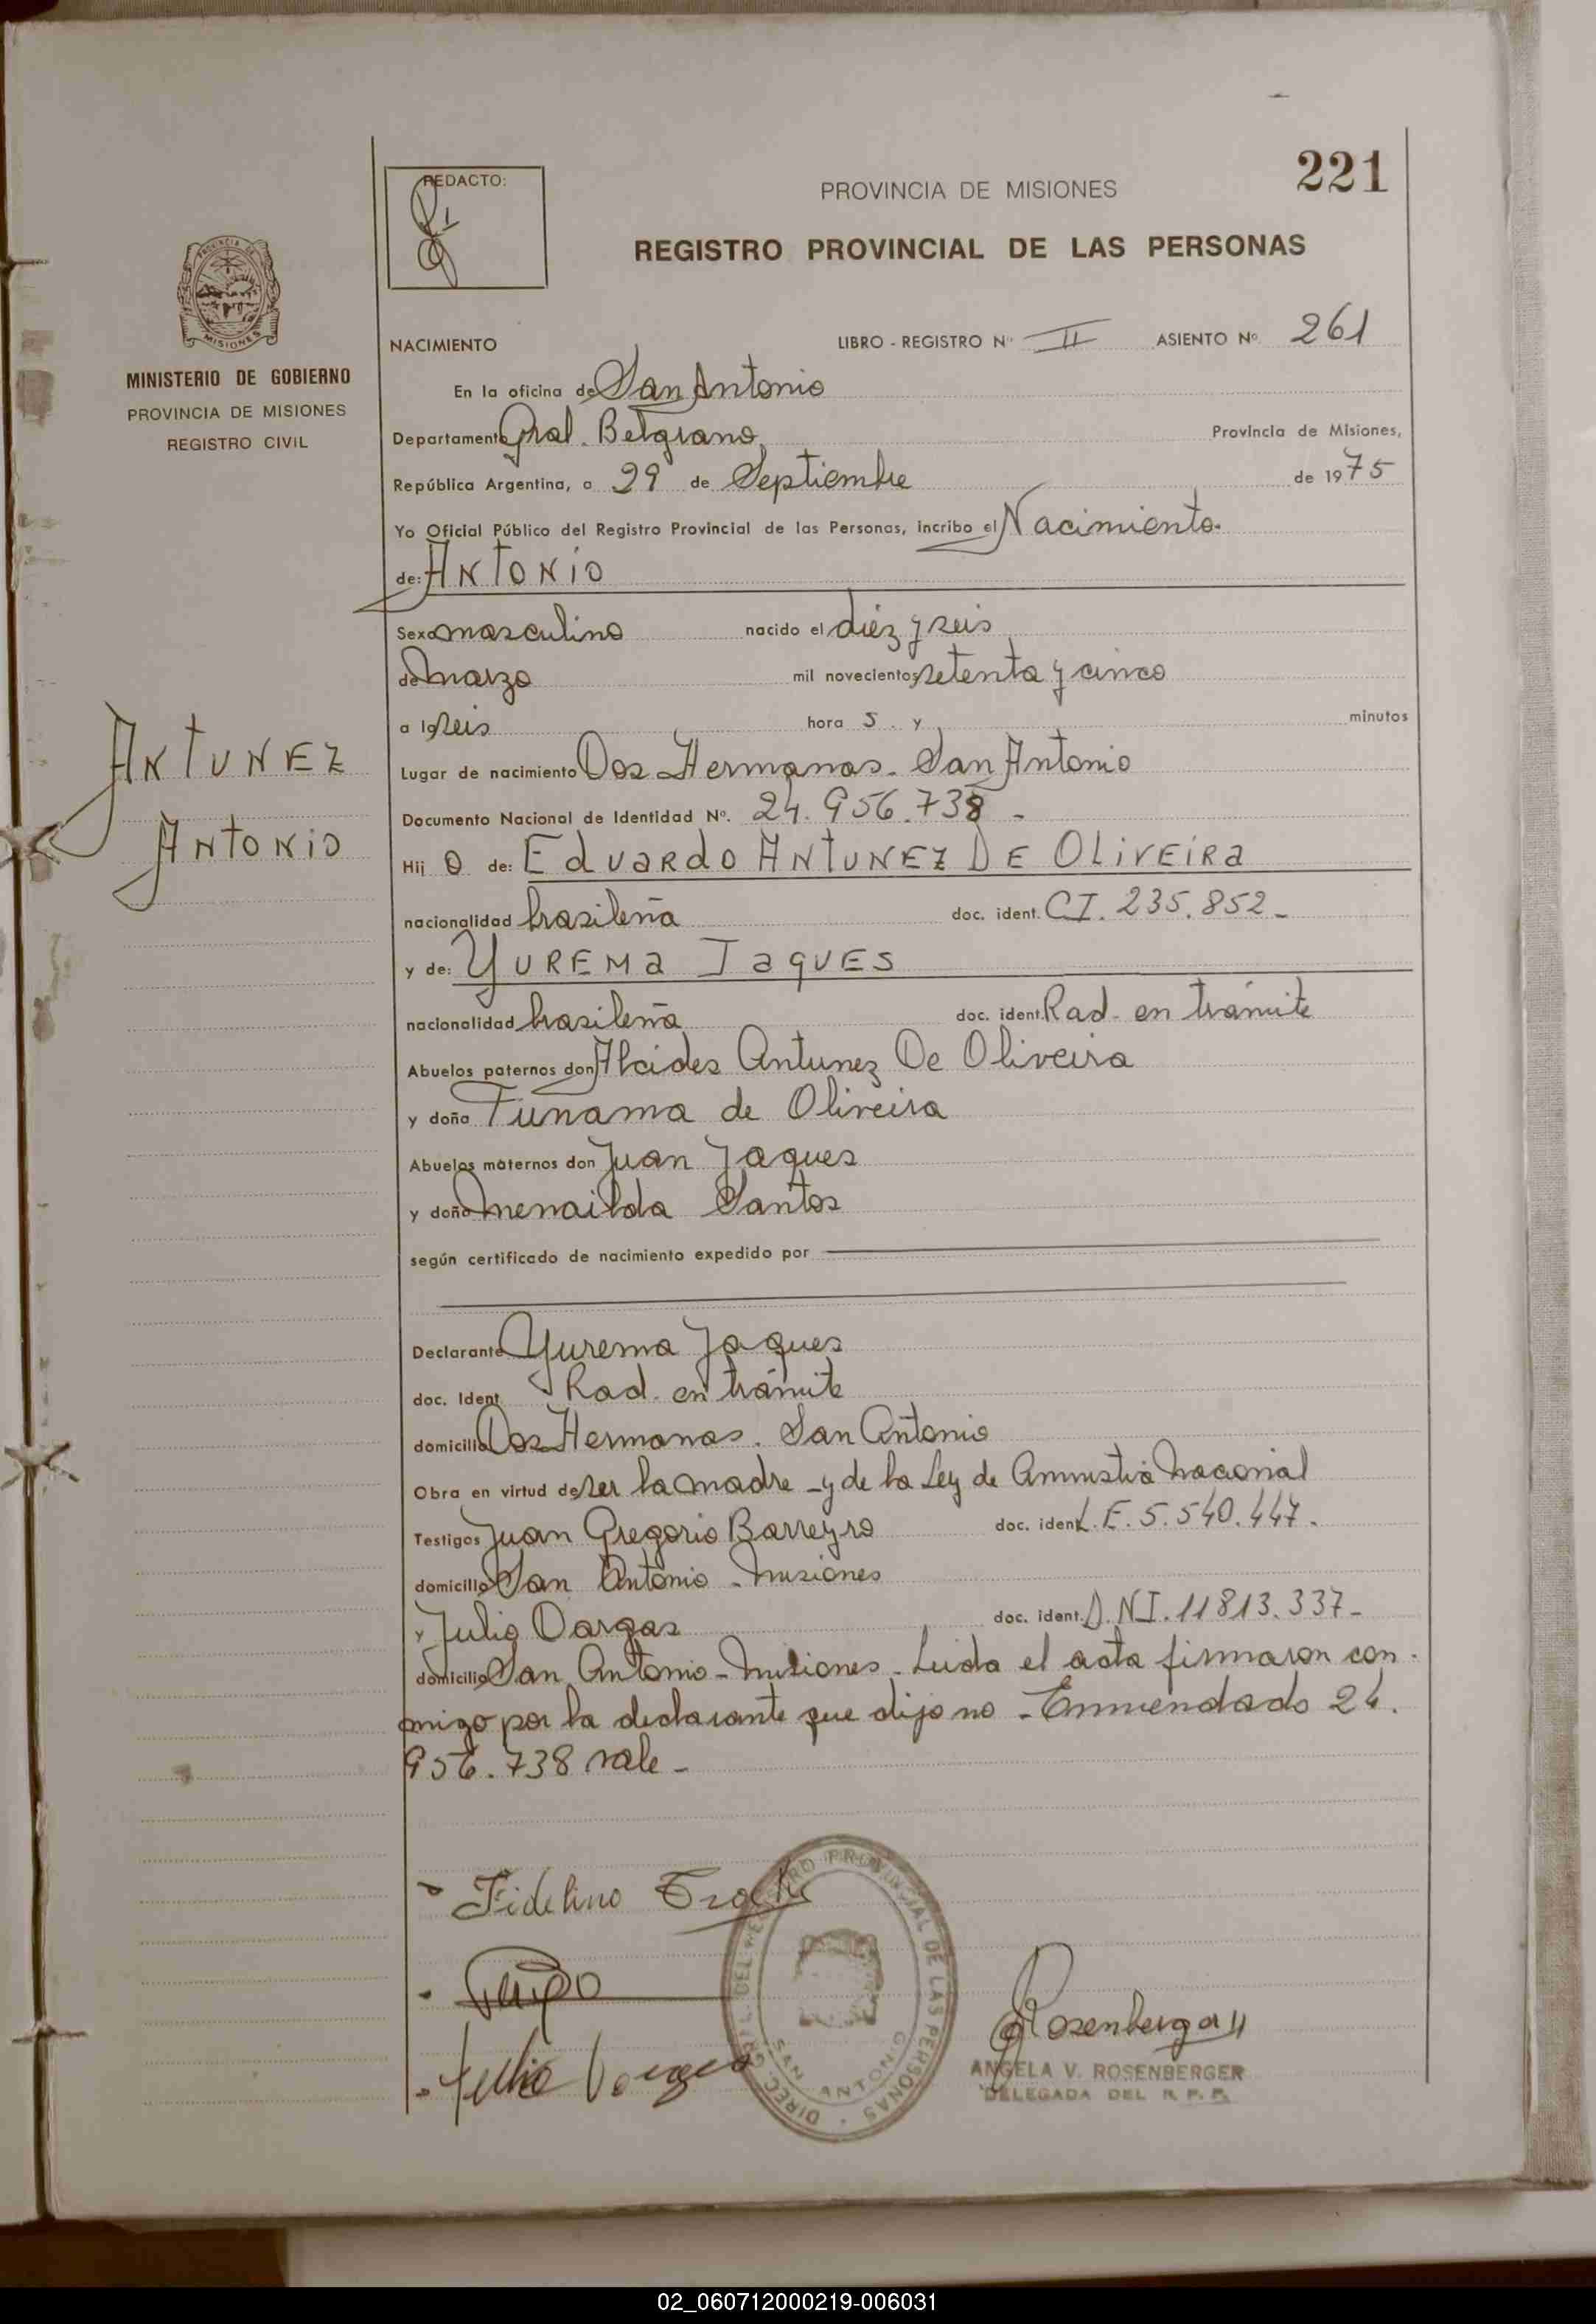 221
REDACTO:
PROVINCIA DE MISIONES
REGISTRO PROVINCIAL DE LAS PERSONAS
MINISTERIO DE GOBIERNO
PROVINCIA DE MISIONES
REGISTRO CIVIL
NACIMIENTO LIBRO - REGISTRO Nº II ASIENTO Nº 261
En la oficina de San Antonio
Departamento Gral. Belgrano, Provincia de Misiones,
República Argentina, a 29 de Septiembre de 1975
Yo Oficial Público del Registro Provincial de las Personas, incribo el Nacimiento.
de: ANTONIO
Sexo masculino nacido el diéz y seis
de marzo mil novecientos setenta y cinco
a las seis hora s . y minutos
ANTUNEZ
ANTONIO
Lugar de nacimiento Dos Hermanas. San Antonio
Documento Nacional de Identidad Nº. 24.956.738 -
Hij o de: Eduardo ANTUNEZ DE OLiVEiRa
nacionalidad brasileña doc. ident. CI. 235.852 -
y de: YUREMa JaqUES
nacionalidad brasileña doc. ident. Rad. en trámite
Abuelos paternos don Alcides Antunez De Oliveira
y doña Tunama de Oliveira
Abuelos maternos don Juan Jaques
y doña Menailda Santos
según certificado de nacimiento expedido por
Declarante Yurema Jaques
doc. Ident. Rad. en trámite
domicilio Dos Hermanas. San Antonio
Obra en virtud de ser la madre - y de la Ley de Amnistía Nacional
Testigos Juan Gregorio Barreyro doc. ident. L.E. 5.540.447.
domicilio San Antonio - Misiones
y Julio Vargas doc. ident. D.NI. 11813.337 -
domicilio San Antonio - Misiones. Leida el acta firmaron con-
migo por la declarante que dijo no - Enmendado 24.
956.738 vale -
Fidelino
Julio Vargas
Rosenberger
ANGELA V. ROSENBERGER
DELEGADA DEL R. P. P.
DIREC. GRAL. DEL REGISTRO PROVINCIAL DE LAS PERSONAS
SAN ANTONIO
02_060712000219-006031